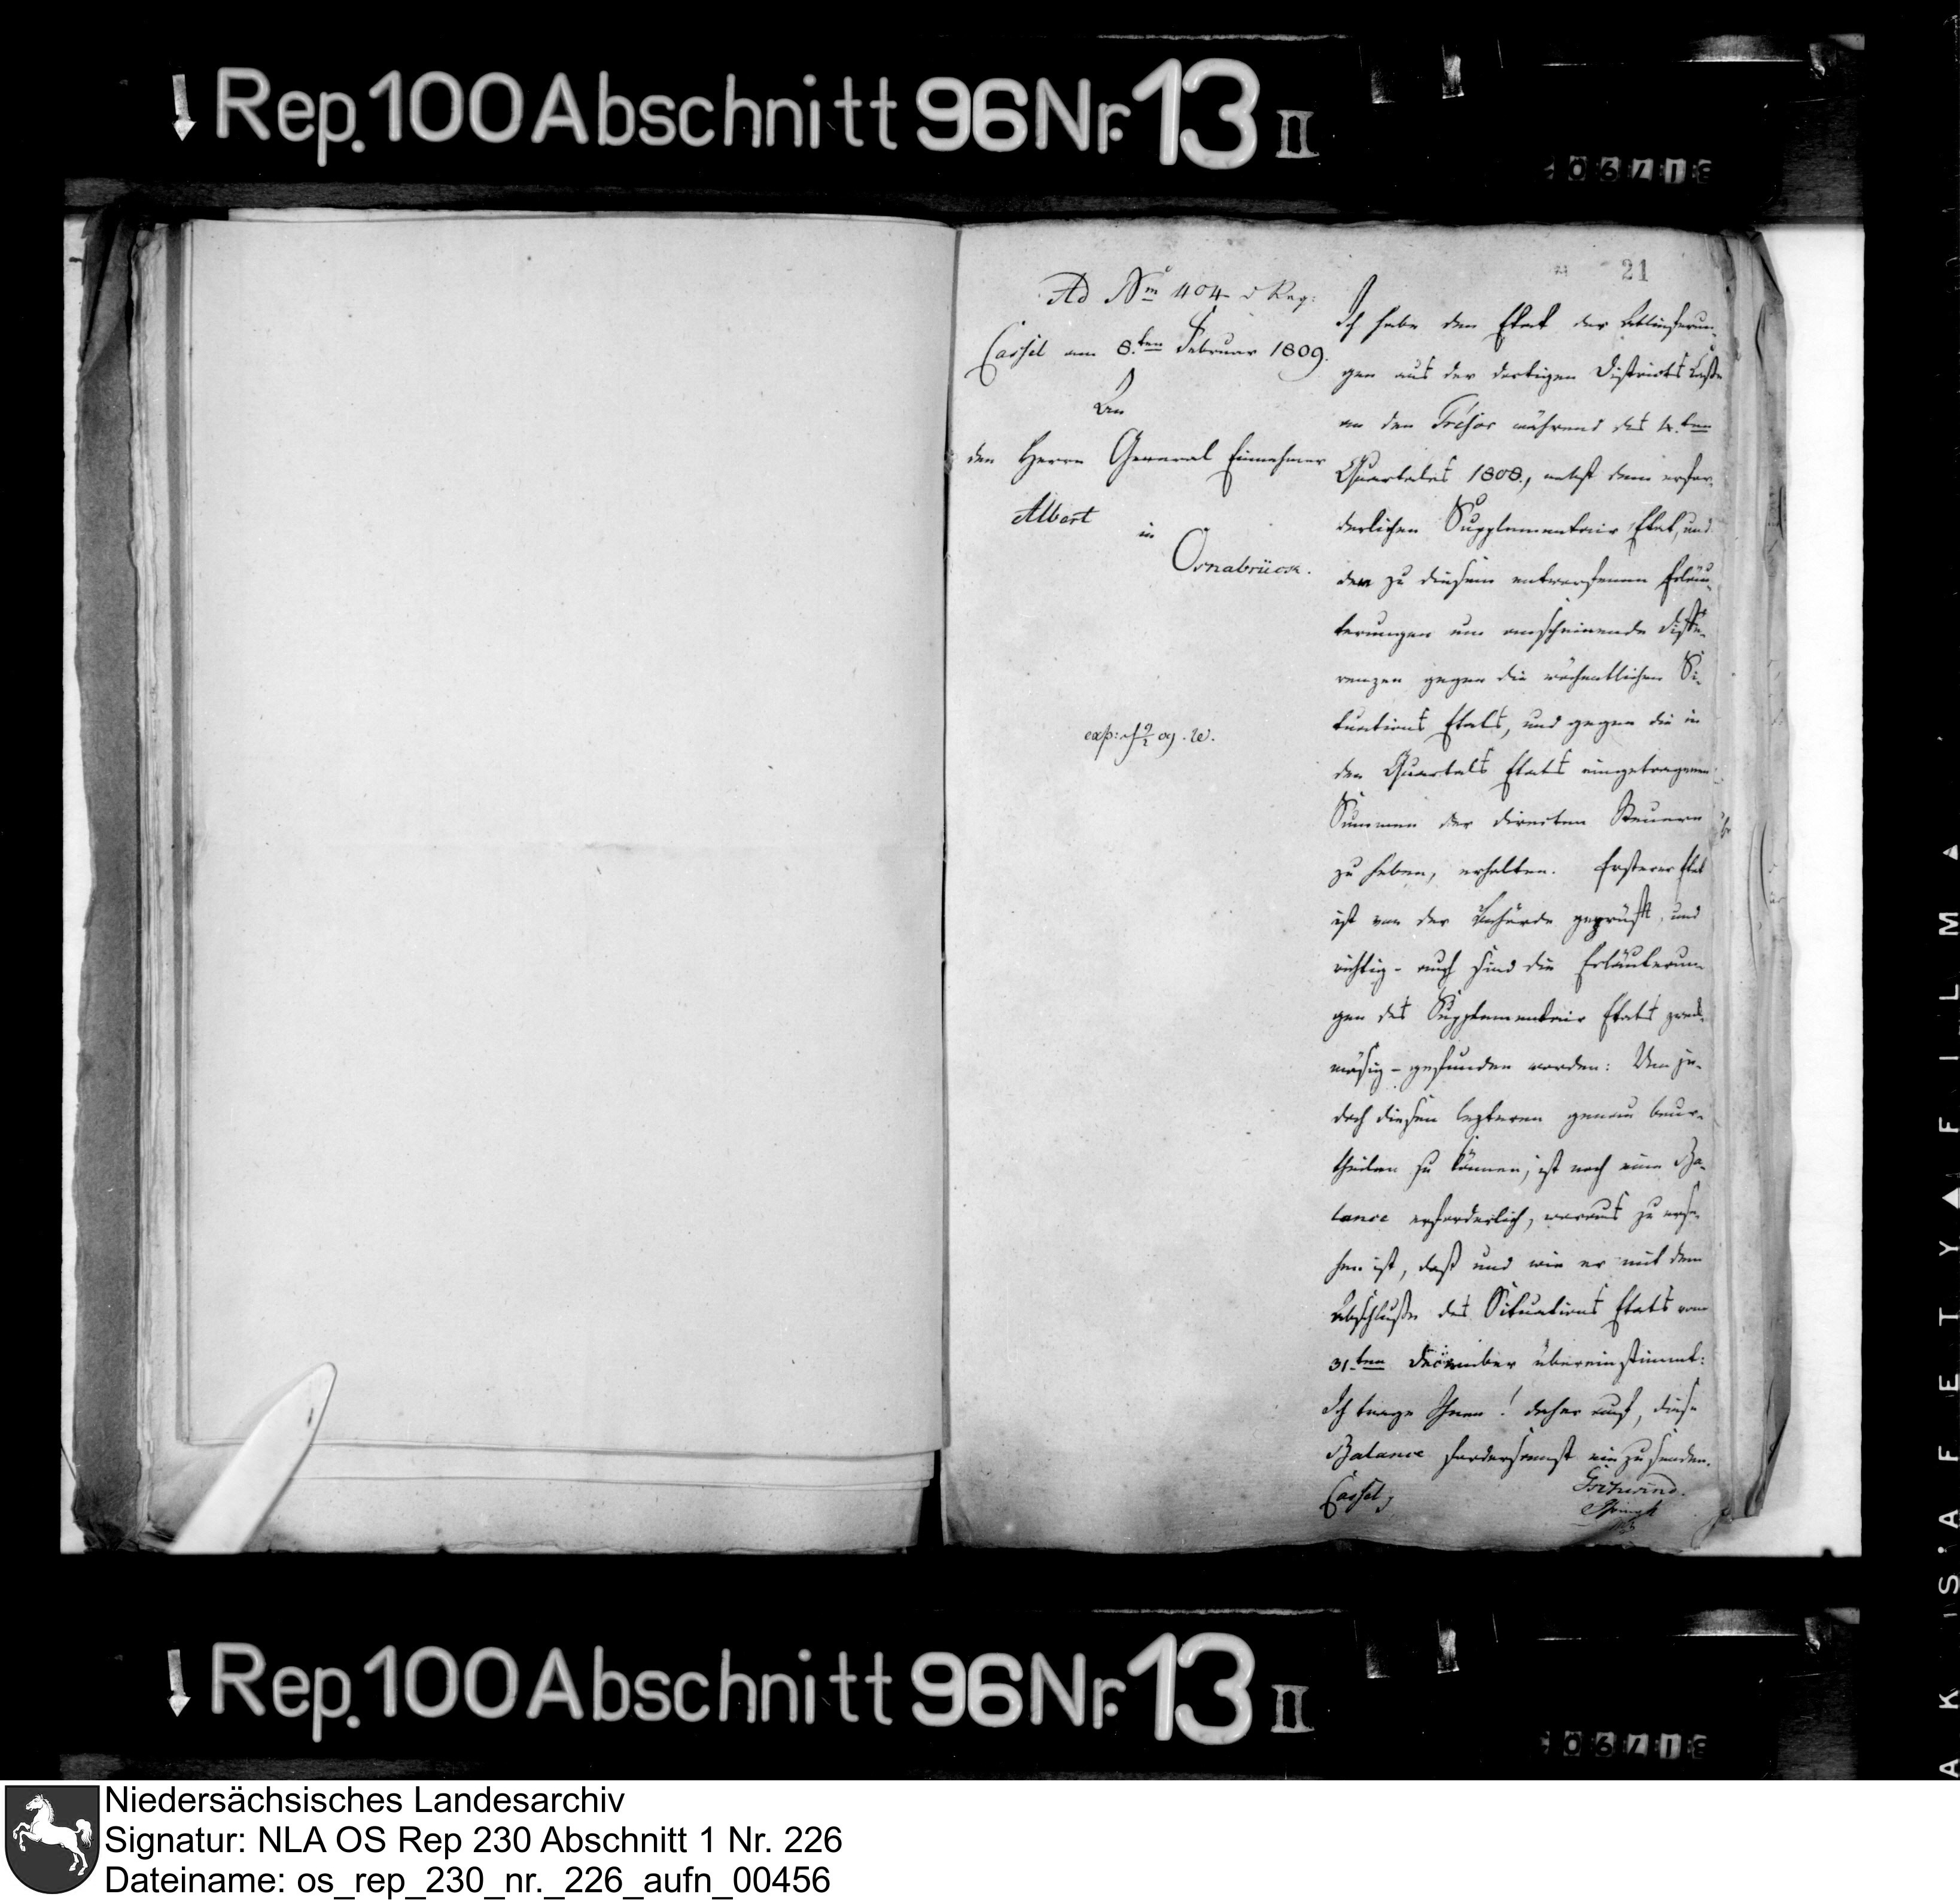 Rep. 100 Abschnitt 96 Nr. 13 II
21
Ad Nm 404
Cassel am 8.ten Februar 1809.
An
den Herrn General Einnehmer
Albert
in
Osnabrück.
exp:
Ich habe den Etat der Ablieferun-
gen aus der dortigen Districts Casse
an den Trésor während des 4.ten
Quartales 1808, nebst dem erfor-
derlichen Supplementair Etat, und
den zu diesem entworfenen Erläu-
terungen um anscheinende Diffe-
renzen gegen die wöchentlichen Si-
tuations Etats, und gegen die in
den Quartals Etats eingetragenen
Summen der directen Steuern
zu heben, erhalten. Ersterer Etat
ist von der Behörde geprüft, und
richtig - auch sind die Erläuterun-
gen des Supplementair Etats zweck-
mäsig - gefunden worden: Um je-
doch diesen lezteren genau beur-
theilen zu können, ist noch eine Ba-
lance erforderlich, woraus zu erse-
hen ist, daß und wie er mit dem
Abschluße des Situations Etats vom
31.ten December übereinstimmt:
Ich trage Ihnen! daher auf, diese
Balance fordersamst einzusenden.
Cassel,
Rep. 100 Abschnitt 96 Nr. 13 II
AK SAFETY FILM
Niedersächsisches Landesarchiv
Signatur: NLA OS Rep 230 Abschnitt 1 Nr. 226
Dateiname: os_rep_230_nr._226_aufn_00456